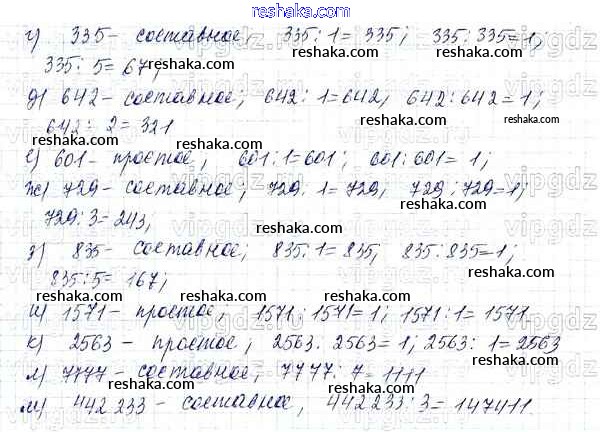 reshaka.com
г) 335 - составное, 335 : 1 = 335; 335 : 335 = 1;
reshaka.com reshaka.com
335 : 5 = 67;
д) 642 - составное; 642 : 1 = 642, 642 : 642 = 1;
reshaka.com
642 : 2 = 321
reshaka.com
е) 601 - простое, 601 : 1 = 601; 601 : 601 = 1;
reshaka.com
ж) 729 - составное; 729 : 1 = 729, 729 : 729 = 1;
reshaka.com
729 : 3 = 243,
reshaka.com
з) 835 - составное; 835 : 1 = 835, 835 : 835 = 1;
reshaka.com
835 : 5 = 167;
reshaka.com reshaka.com
и) 1571 - простое, 1571 : 1571 = 1; 1571 : 1 = 1571
reshaka.com
к) 2563 - простое; 2563 : 2563 = 1; 2563 : 1 = 2563
reshaka.com
л) 7777 - составное; 7777 : 7 = 1111
reshaka.com reshaka.com
м) 442 233 - составное, 442 233 : 3 = 147411
reshaka.com